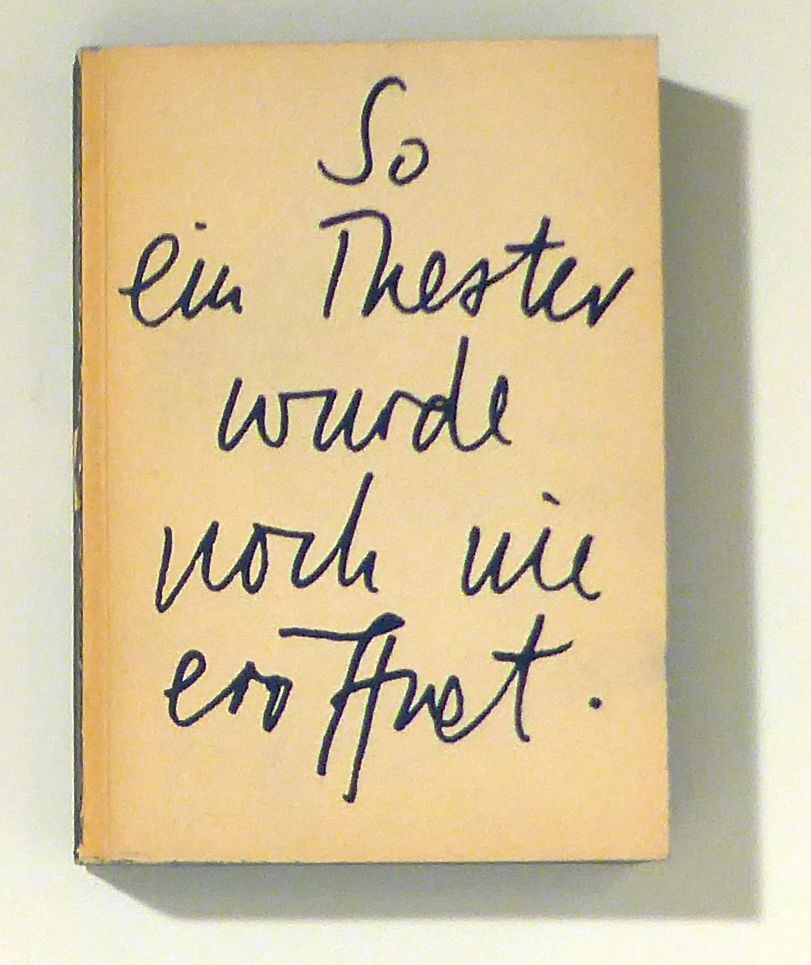 So
ein Theater
wurde
noch nie
eröffnet.